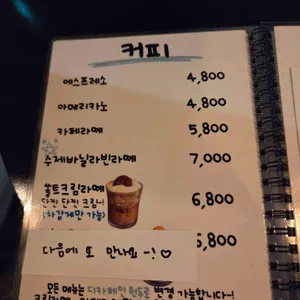 커피
에스프레소 4,800
아메리카노 4,800
카페라떼 5,800
수제바닐라빈라떼 7,000
쏠트크림라떼 6,800
단짠 단짠 크림~!
(차갑게만 가능)
다음에 또 만나요 -! ♡
5,800
모든 메뉴는 디카페인 원두로 변경 가능합니다~!